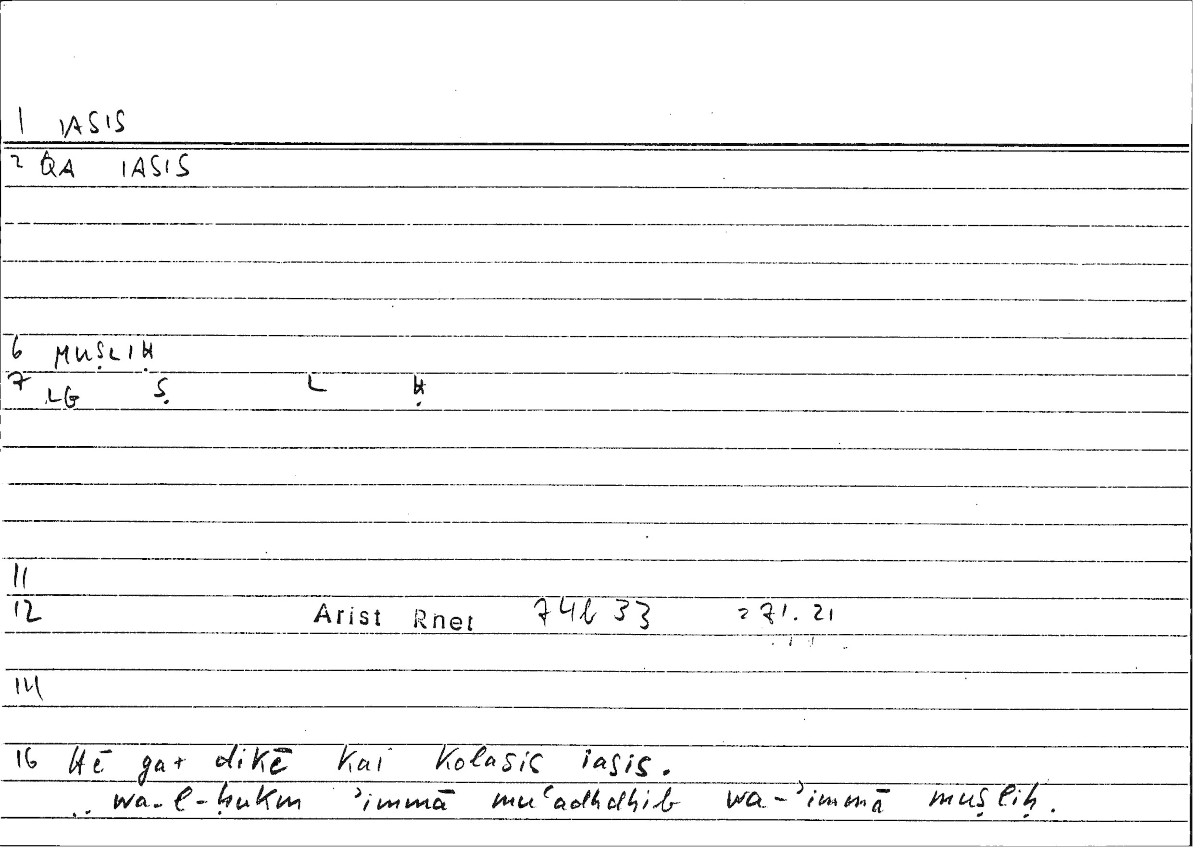 1 IASIS
2 QA IASIS
6 MUṢLIḤ
7 LG Ṣ L Ḥ
11
12 Arist Rhet 74b33 271.21
14
16 Hē gar dikē kai kolasis iasis.
.. wa-l-ḥukm ʾimmā muʿadhdhib wa-ʾimmā muṣliḥ.